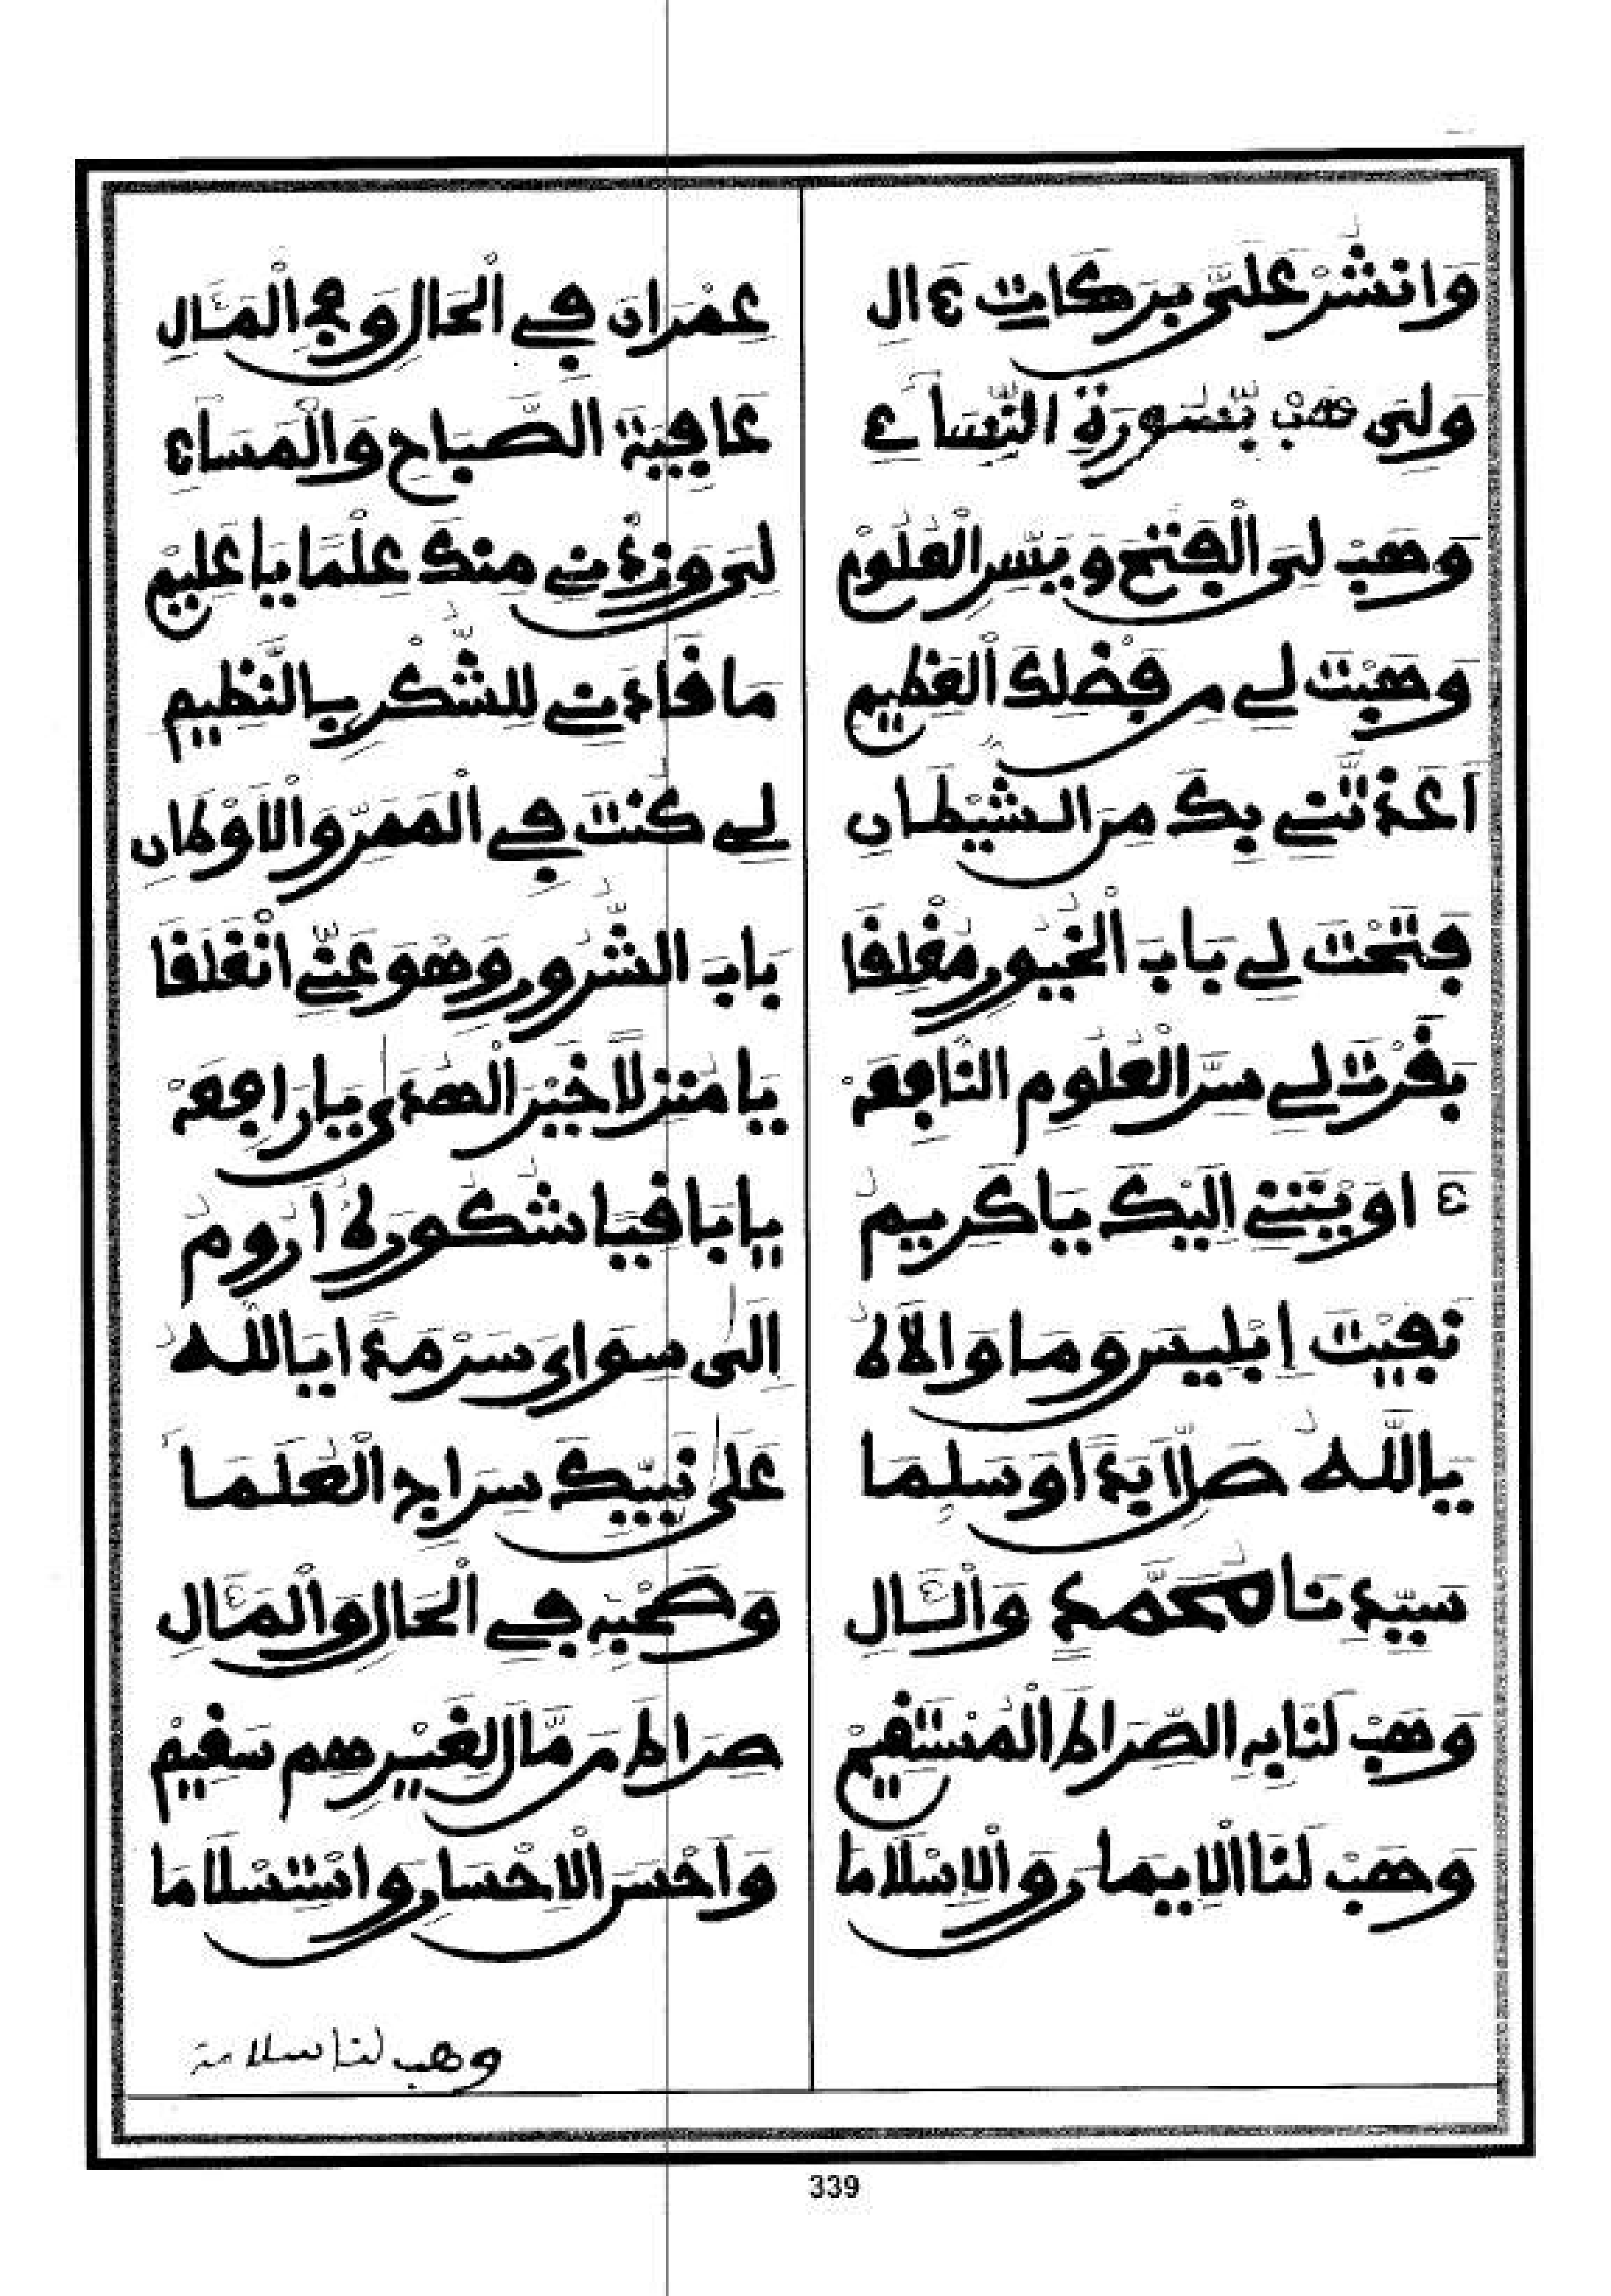 وَانْشُرْ عَلَىَّ بَرَكَاتِ ءَالِ عِمْرَانَ فِي الْحَالِ وَفِي الْمَئَالِ
وَلِىَ هَبْ بِسُورَةِ النِّسَاءِ عَافِيَةَ الصَّبَاحِ وَالْمَسَاءِ
وَهَبْ لِىَ الْفَتْحَ وَيَسِّرِ الْعُلُومْ لِىَ وَزِدْنِي مِنْكَ عِلْمًا يَا عَلِيمْ
وَهَبْتَ لِي مِن فَضْلِكَ الْعَظِيمِ مَا قَادَنِي لِلشُّكْرِ بِالنَّظِيمِ
أَعَذْتَّنِي بِكَ مِنَ الشَّيْطَانِ لِي كُنْتَ فِي الْمَمَرِّ وَالْأَوْطَانِ
فَتَحْتَ لِي بَابَ الْخُيُورِ مُغْلِقَا بَابَ الشُّرُورِ وَهْوَ عَنِّي انْغَلَقَا
بَقَّرْتَ لِي سِرَّ الْعُلُومِ النَّافِعَهْ يَا مُنْزِلًا خَيْرَ الْهُدَىٰ يَا رَافِعَهْ
ءَاوَيْتَنِي إِلَيْكَ يَا كَرِيمُ يَا بَاقِيَا شُكُورَهُ أَرُومُ
نَفَيْتَ إِبْلِيسَ وَمَا وَالَاهُ إِلَىٰ سِوَايَ سَرْمَدًا يَا اللَّهُ
يَا اللَّهُ صَلِّ أَبَدًا وَسَلِّمَا عَلَىٰ نَبِيِّكَ سِرَاجِ الْعُلَمَا
سَيِّدِنَا مُحَمَّدٍ وَالْئَالِ وَصَحْبِهِ فِي الْحَالِ وَالْمَئَالِ
وَهَبْ لَنَا بِهِ الصِّرَاطَ الْمُسْتَقِيمْ صِرَاطَ مَن مَّالَ لِغَيْرِهِم سَقِيمْ
وَهَبْ لَنَا الْإِيمَانَ وَالْإِسْلَامَا وَأَحْسَنَ الْإِحْسَانِ وَاسْتِسْلَامَا
وهب لنا سلامة
339